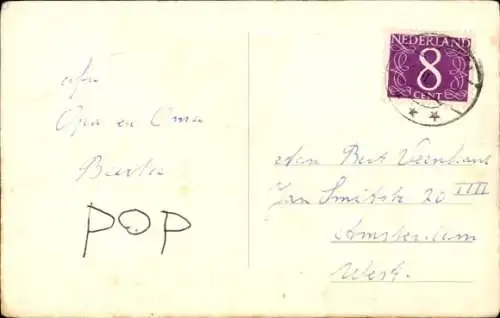 Opa en Oma
POP
NEDERLAND
8
CENT
Aan Bert Veenhuis
Jan Smitstr 20 III
Amsterdam
West.